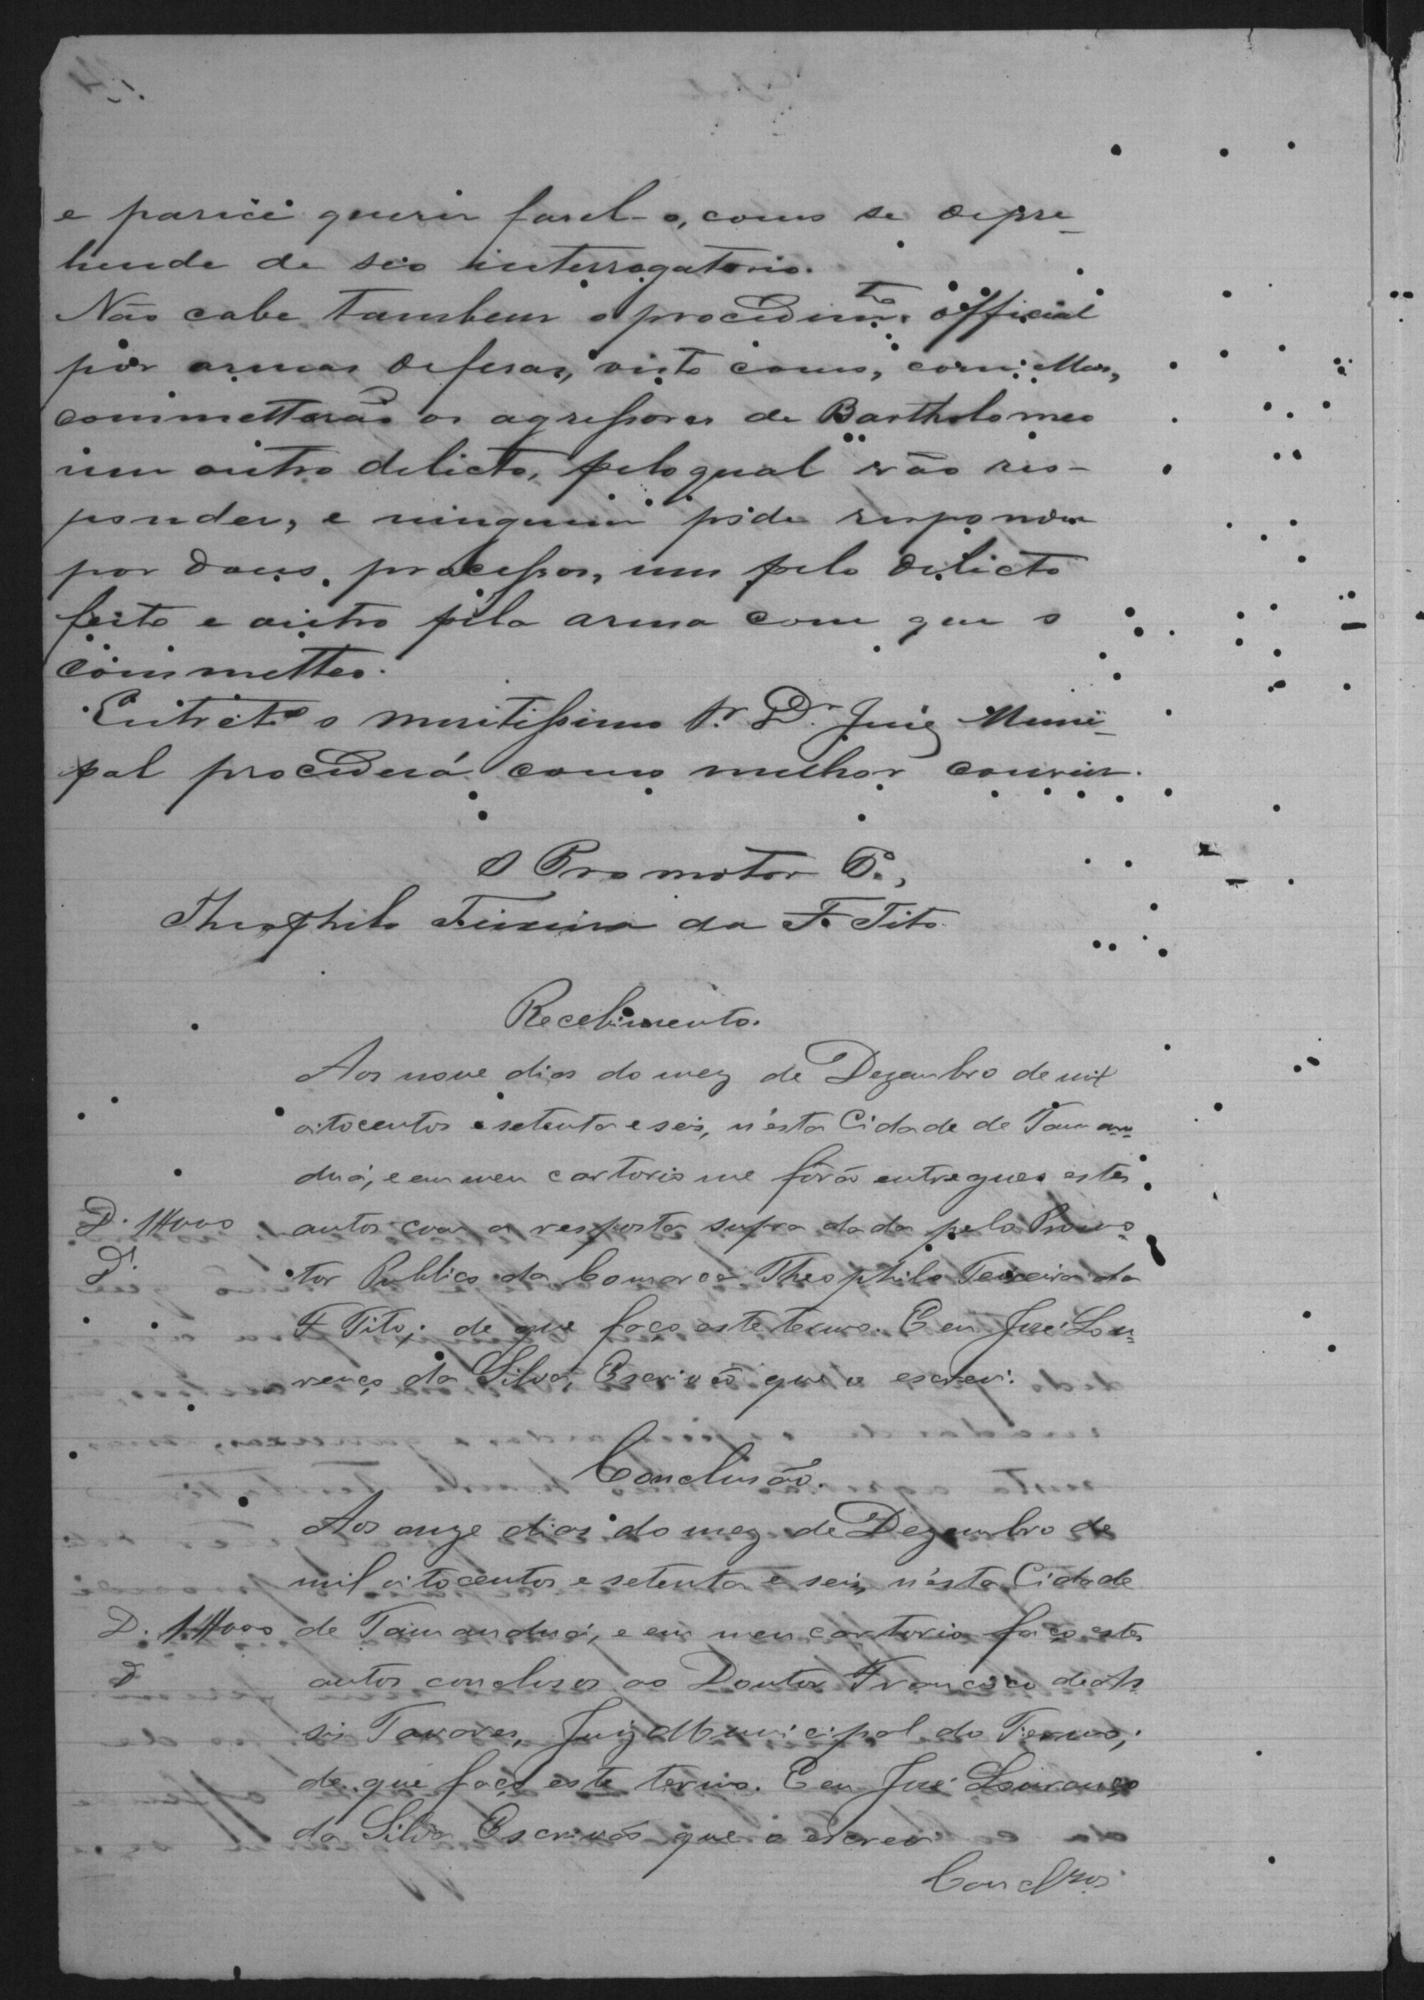 e parece querer fasel-o, como se depre-
hende de seo interrogatorio.
Não cabe tambem o procedimto official
por armas defesas, visto como, com ellas,
commetterão os agressores de Bartholomeo
um outro delicto, pelo qual vão res-
ponder, e ninguem pode responder
por dous processos, um pelo delicto
feito e outro pela arma com que o
commetteo.
Entretº o meritissimo Sr. Dr. Juiz Muni-
pal procederá como melhor convier.
O Promotor P.,
Theophilo Teixeira da F. Tito.
Recebimento.
Aos nove dias do mez de Dezembro de mil
oitocentos e setenta e seis, n'esta Cidade de Taman-
duá, e em meu cartorio me forão entregues estes
D. 1#000 autos com a resposta supra dada pelo Promo-
tor Publico da Comarca Theophilo Teixeira da
F. Tito; de que faço este termo. E eu José Lou-
renço da Silva, Escrivão que o escrevi.
Conclusão.
Aos onze dias do mez de Dezembro de
mil oitocentos e setenta e seis, n'esta Cidade
D. 1#000 de Tamanduá, e em meu cartorio faço estes
autos conclusos ao Doutor Francisco de As
sis Tavares, Juiz Municipal do Termo;
de que faço este termo. E eu José Lourenço
da Silva Escrivão que o escrevi.
Conclsos